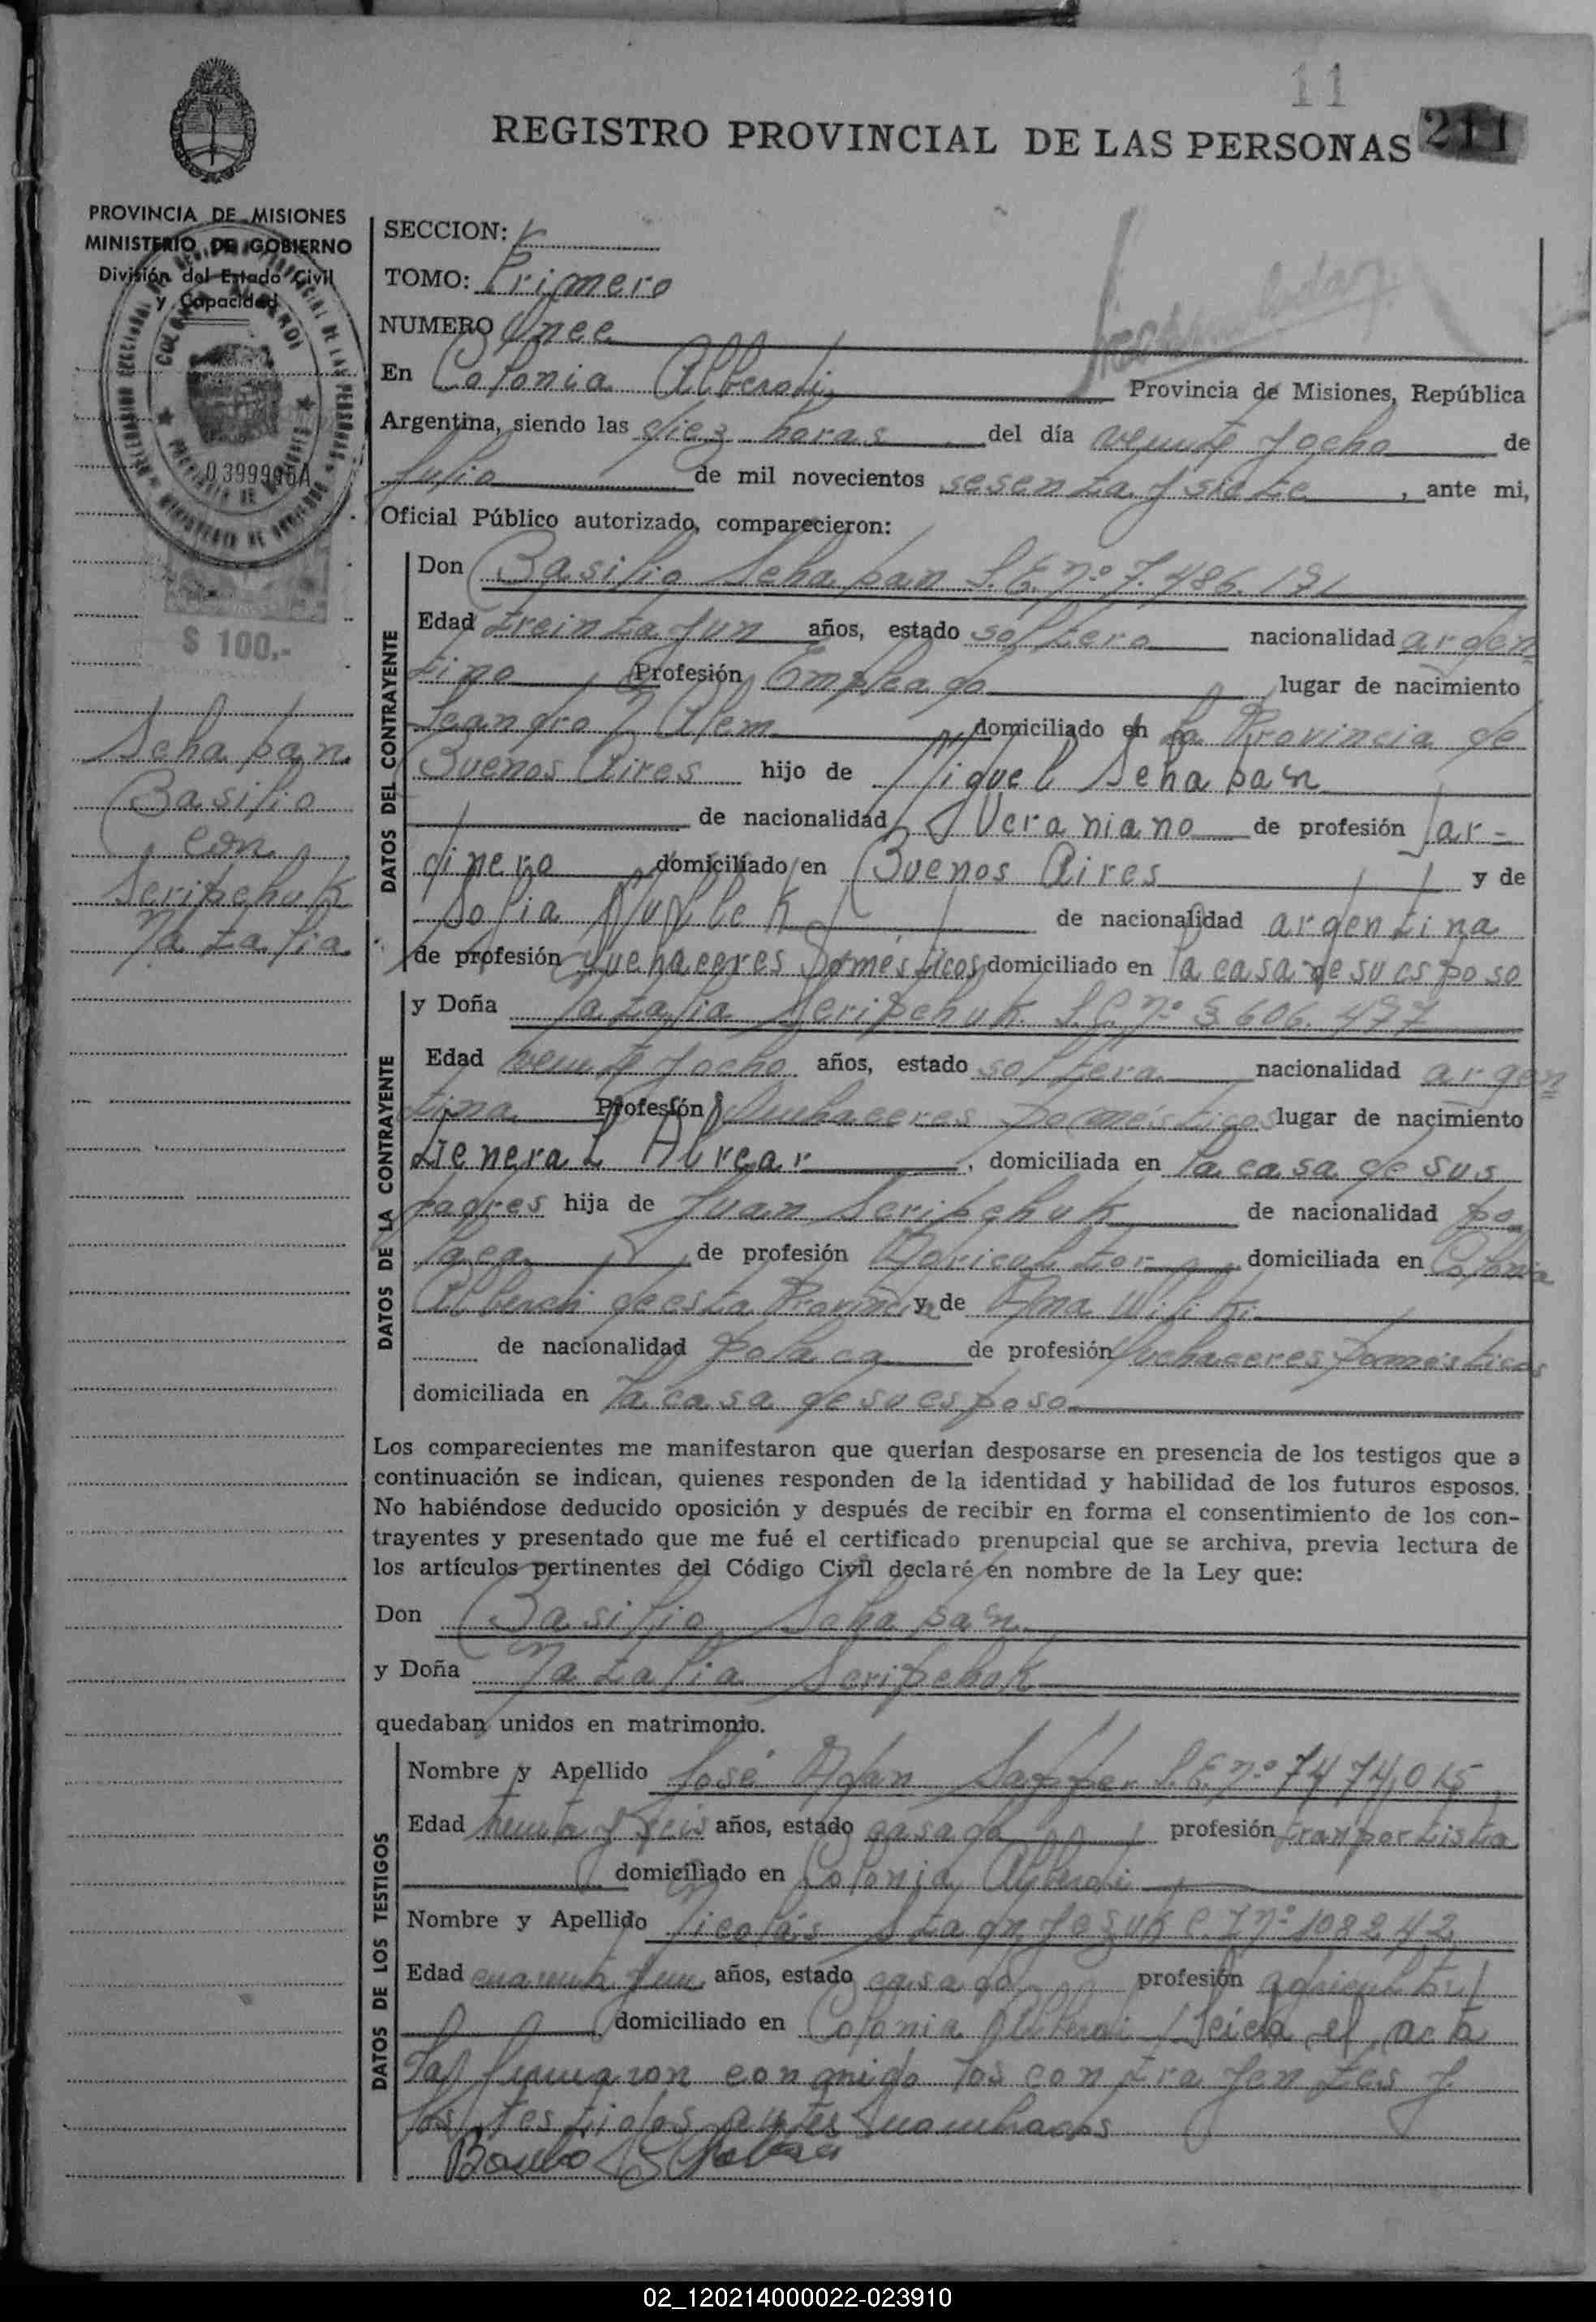 11
REGISTRO PROVINCIAL DE LAS PERSONAS 211
PROVINCIA DE MISIONES
MINISTERIO DE GOBIERNO
División del Estado Civil
y Capacidad
$ 100.-
Schapan
Basilio
con
Scripchuk
Natalia
SECCION:
TOMO: Primero
NUMERO Once
En Colonia Alberdi Provincia de Misiones, República
Argentina, siendo las diez horas del día veinte y ocho de
Julio de mil novecientos sesenta y siete, ante mi,
Oficial Público autorizado, comparecieron:
DATOS DEL CONTRAYENTE
Don Basilio Schapan L.E. nº 7.486.191
Edad treinta y un años, estado soltero nacionalidad argen
tino Profesión Empleado lugar de nacimiento
Leandro N Alem domiciliado en la Provincia de
Buenos Aires hijo de Miguel Schapan
de nacionalidad Ucraniano de profesión Jar-
dinero domiciliado en Buenos Aires y de
Sofia de nacionalidad argentina
de profesión Quehaceres Domésticos domiciliado en la casa de su esposo
DATOS DE LA CONTRAYENTE
y Doña Natalia Scripchuk L.C. nº 3.606.477
Edad veinte y ocho años, estado soltera nacionalidad argen
tina Profesión Quehaceres Domésticos lugar de nacimiento
General Alvear, domiciliada en la casa de sus
padres hija de Juan Scripchuk de nacionalidad po
laca de profesión Agricultor domiciliada en Colonia
Alberdi de esta Provincia y de Ana
de nacionalidad polaca de profesión Quehaceres Domésticos
domiciliada en la casa de su esposo
Los comparecientes me manifestaron que querían desposarse en presencia de los testigos que a
continuación se indican, quienes responden de la identidad y habilidad de los futuros esposos.
No habiéndose deducido oposición y después de recibir en forma el consentimiento de los con-
trayentes y presentado que me fué el certificado prenupcial que se archiva, previa lectura de
los artículos pertinentes del Código Civil declaré en nombre de la Ley que:
Don Basilio Schapan
y Doña Natalia Scripchuk
quedaban unidos en matrimonio.
DATOS DE LOS TESTIGOS
Nombre y Apellido José Adan L.E. nº 7474,015
Edad treinta y seis años, estado casado profesión tranportista
domiciliado en Colonia Alberdi
Nombre y Apellido Nicolás C.I nº 108242
Edad cuarenta y un años, estado casado profesión agricultor
domiciliado en Colonia Alberdi Leida el acta
la firmaron conmigo los contrayentes y
los testigos antes nombrados
02_120214000022-023910